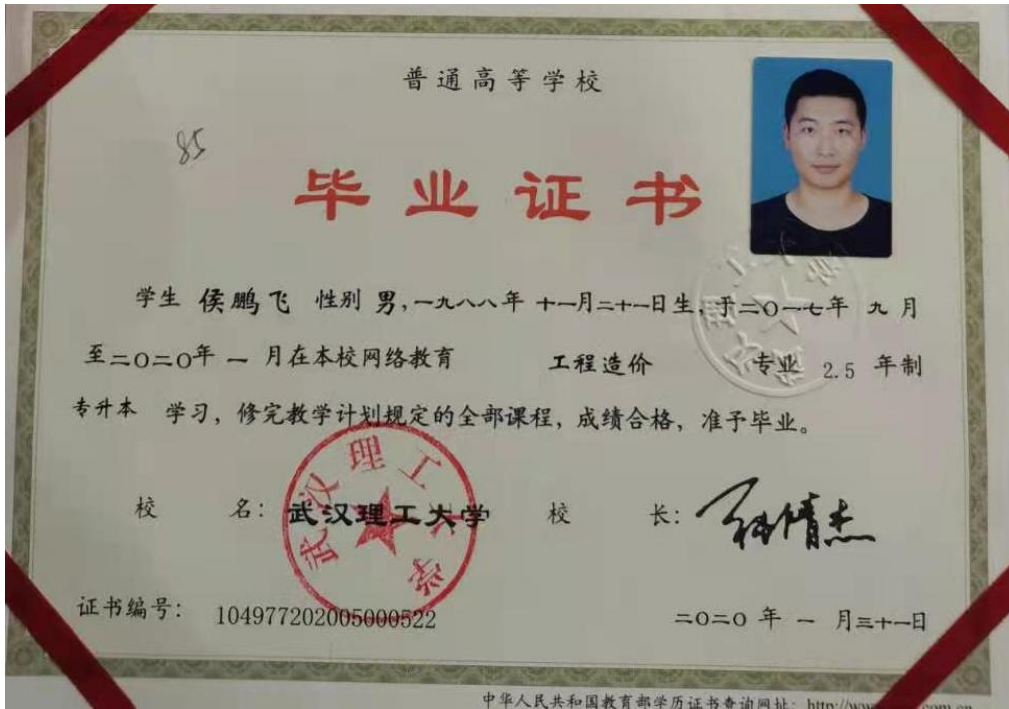 普通高等学校
85
毕业证书
学生 侯鹏飞 性别 男,一九八八年 十一月二十一日生,于二〇一七年 九 月
至二〇二〇年 一 月在本校网络教育 工程造价 专业 2.5 年制
专升本 学习,修完教学计划规定的全部课程,成绩合格,准予毕业。
校 名: 武汉理工大学 校 长:
武汉理工大学
证书编号: 104977202005000522 二〇二〇 年 一 月三十一日
中华人民共和国教育部学历证书查询网址: http://www